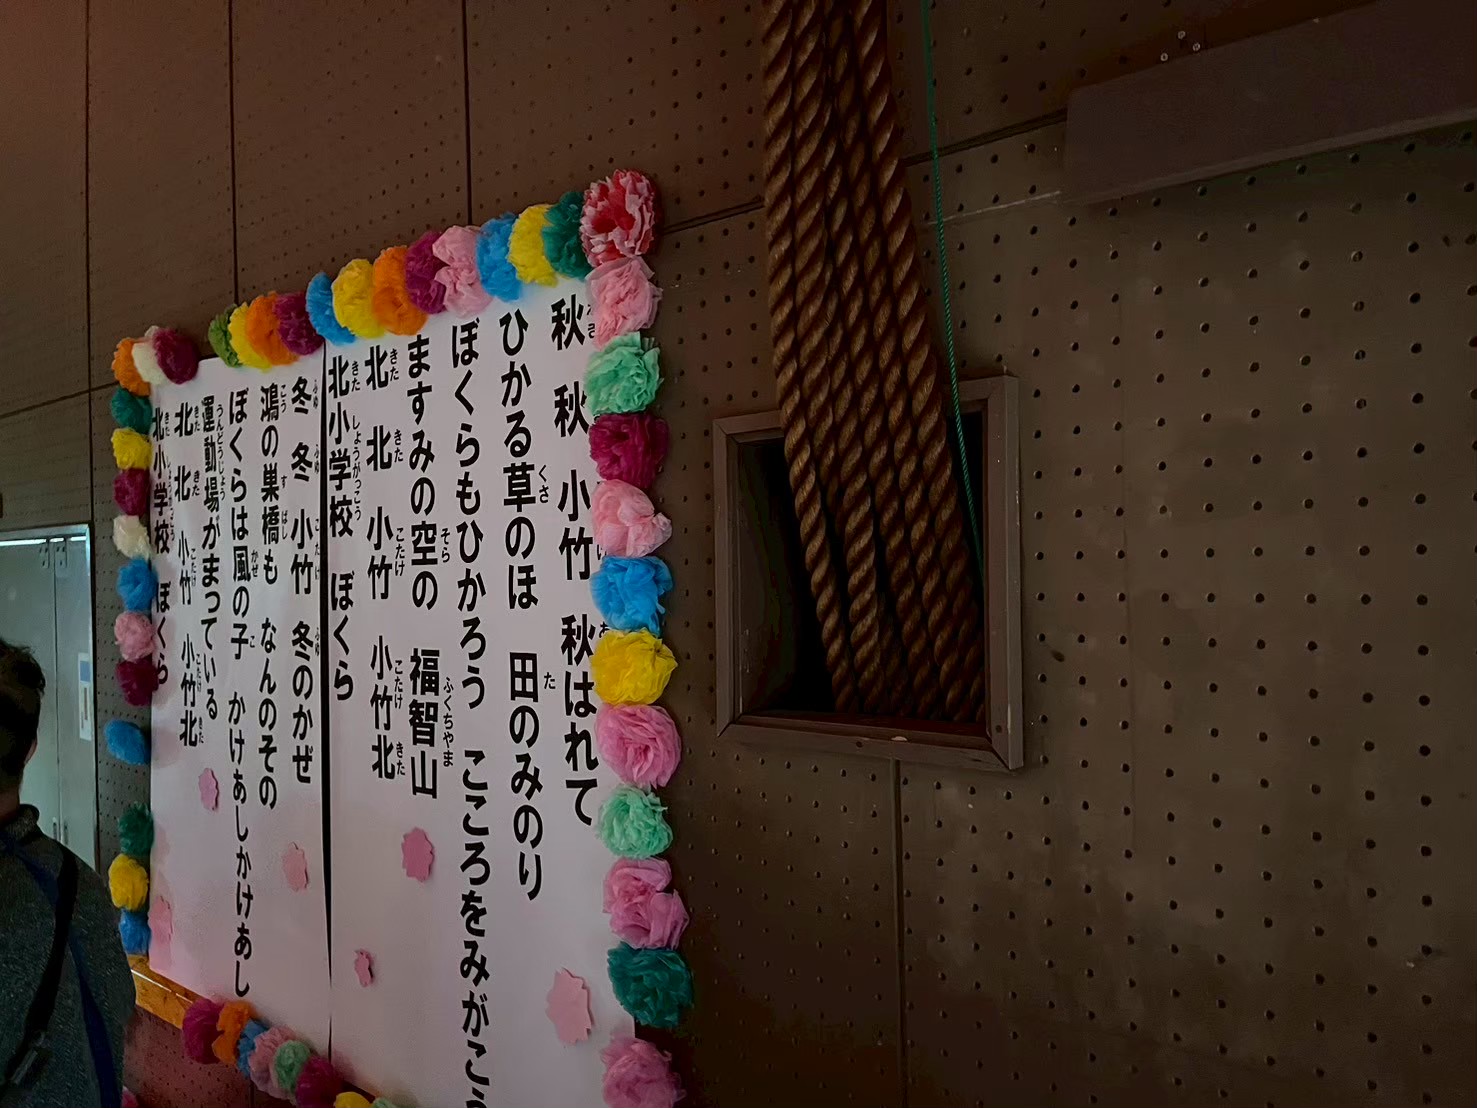 秋 秋 小竹 秋はれて
ひかる草のほ 田のみのり
ぼくらもひかろう こころをみがこう
ますみの空の 福智山
北 北 小竹 小竹北
北小学校 ぼくら
冬 冬 小竹 冬のかぜ
鴻の巣橋も なんのその
ぼくらは風の子 かけあしかけあし
運動場がまっている
北 北 小竹 小竹北
北小学校 ぼくら